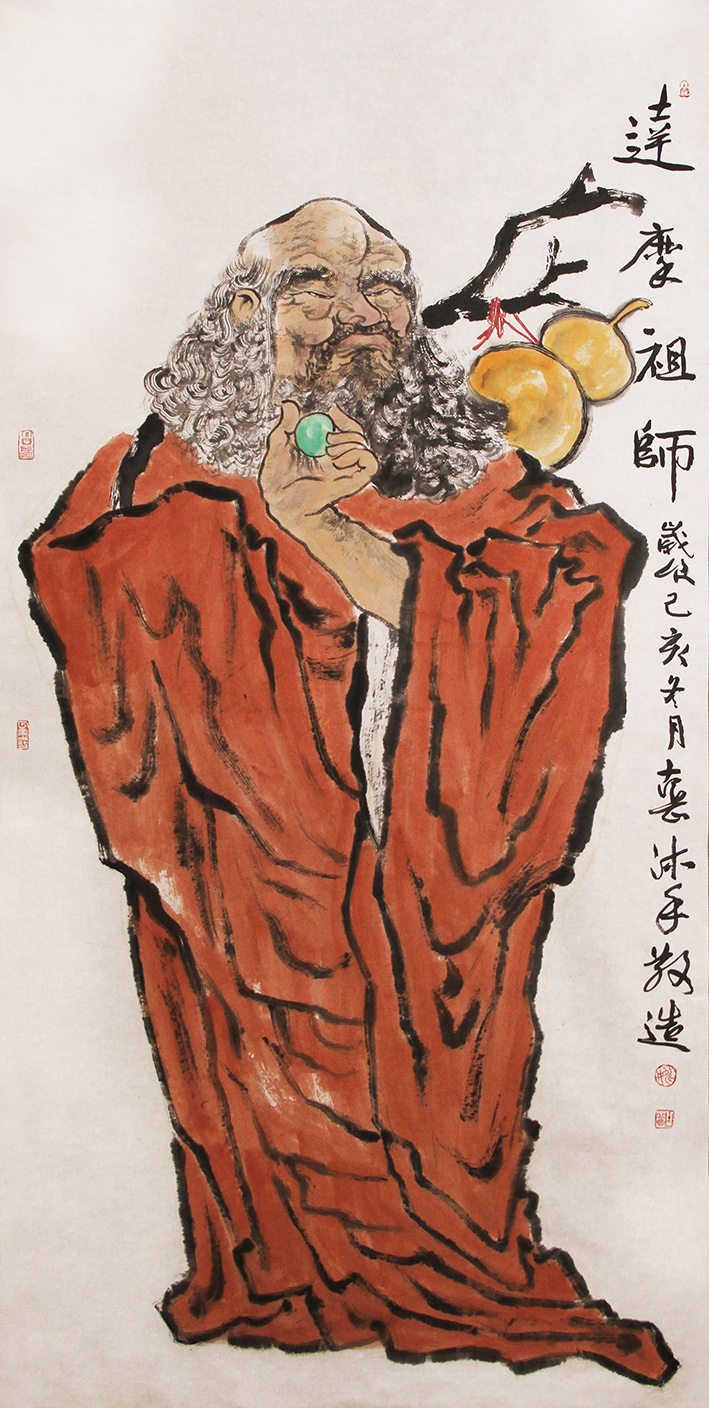 達摩祖師
歲次己亥冬月憙沐手敬造